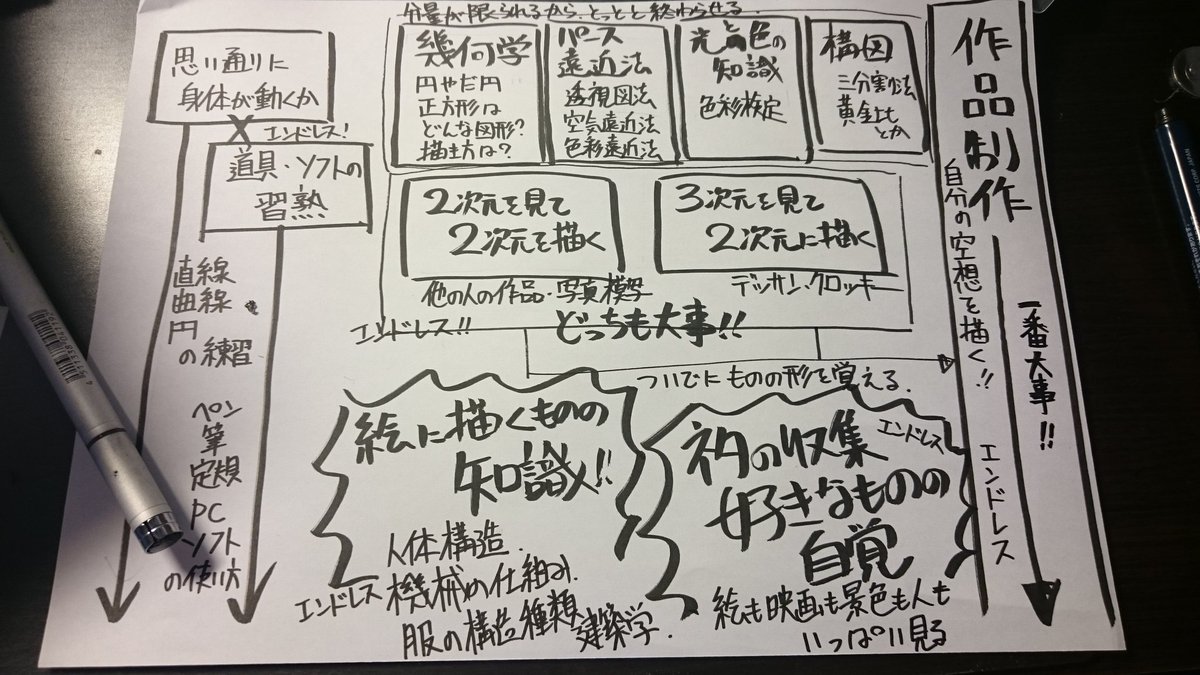 分量が限られるから、とっとと終わらせる。
思い通りに
身体が動くか
×
エンドレス!
道具・ソフトの
習熟
直線
曲線
円
の練習
ペン
筆
定規
PC
ソフト
の使い方
幾何学
円やだ円
正方形は
どんな図形?
描き方は?
パース
遠近法
透視図法
空気遠近法
色彩遠近法
光と色の
知識
色彩検定
構図
三分割法
黄金比
とか
2次元を見て
2次元を描く
他の人の作品・写真模写
3次元を見て
2次元に描く
デッサン・クロッキー
エンドレス!!
どっちも大事!!
ついでにものの形を覚える。
絵に描くものの
知識!!
人体構造.
エンドレス
機械の仕組み.
服の構造種類
建築学.
ネタの収集
エンドレス
好きなものの
自覚
絵も映画も景色も人も
いっぱい見る
作品制作
自分の空想を描く!!
エンドレス
一番大事!!